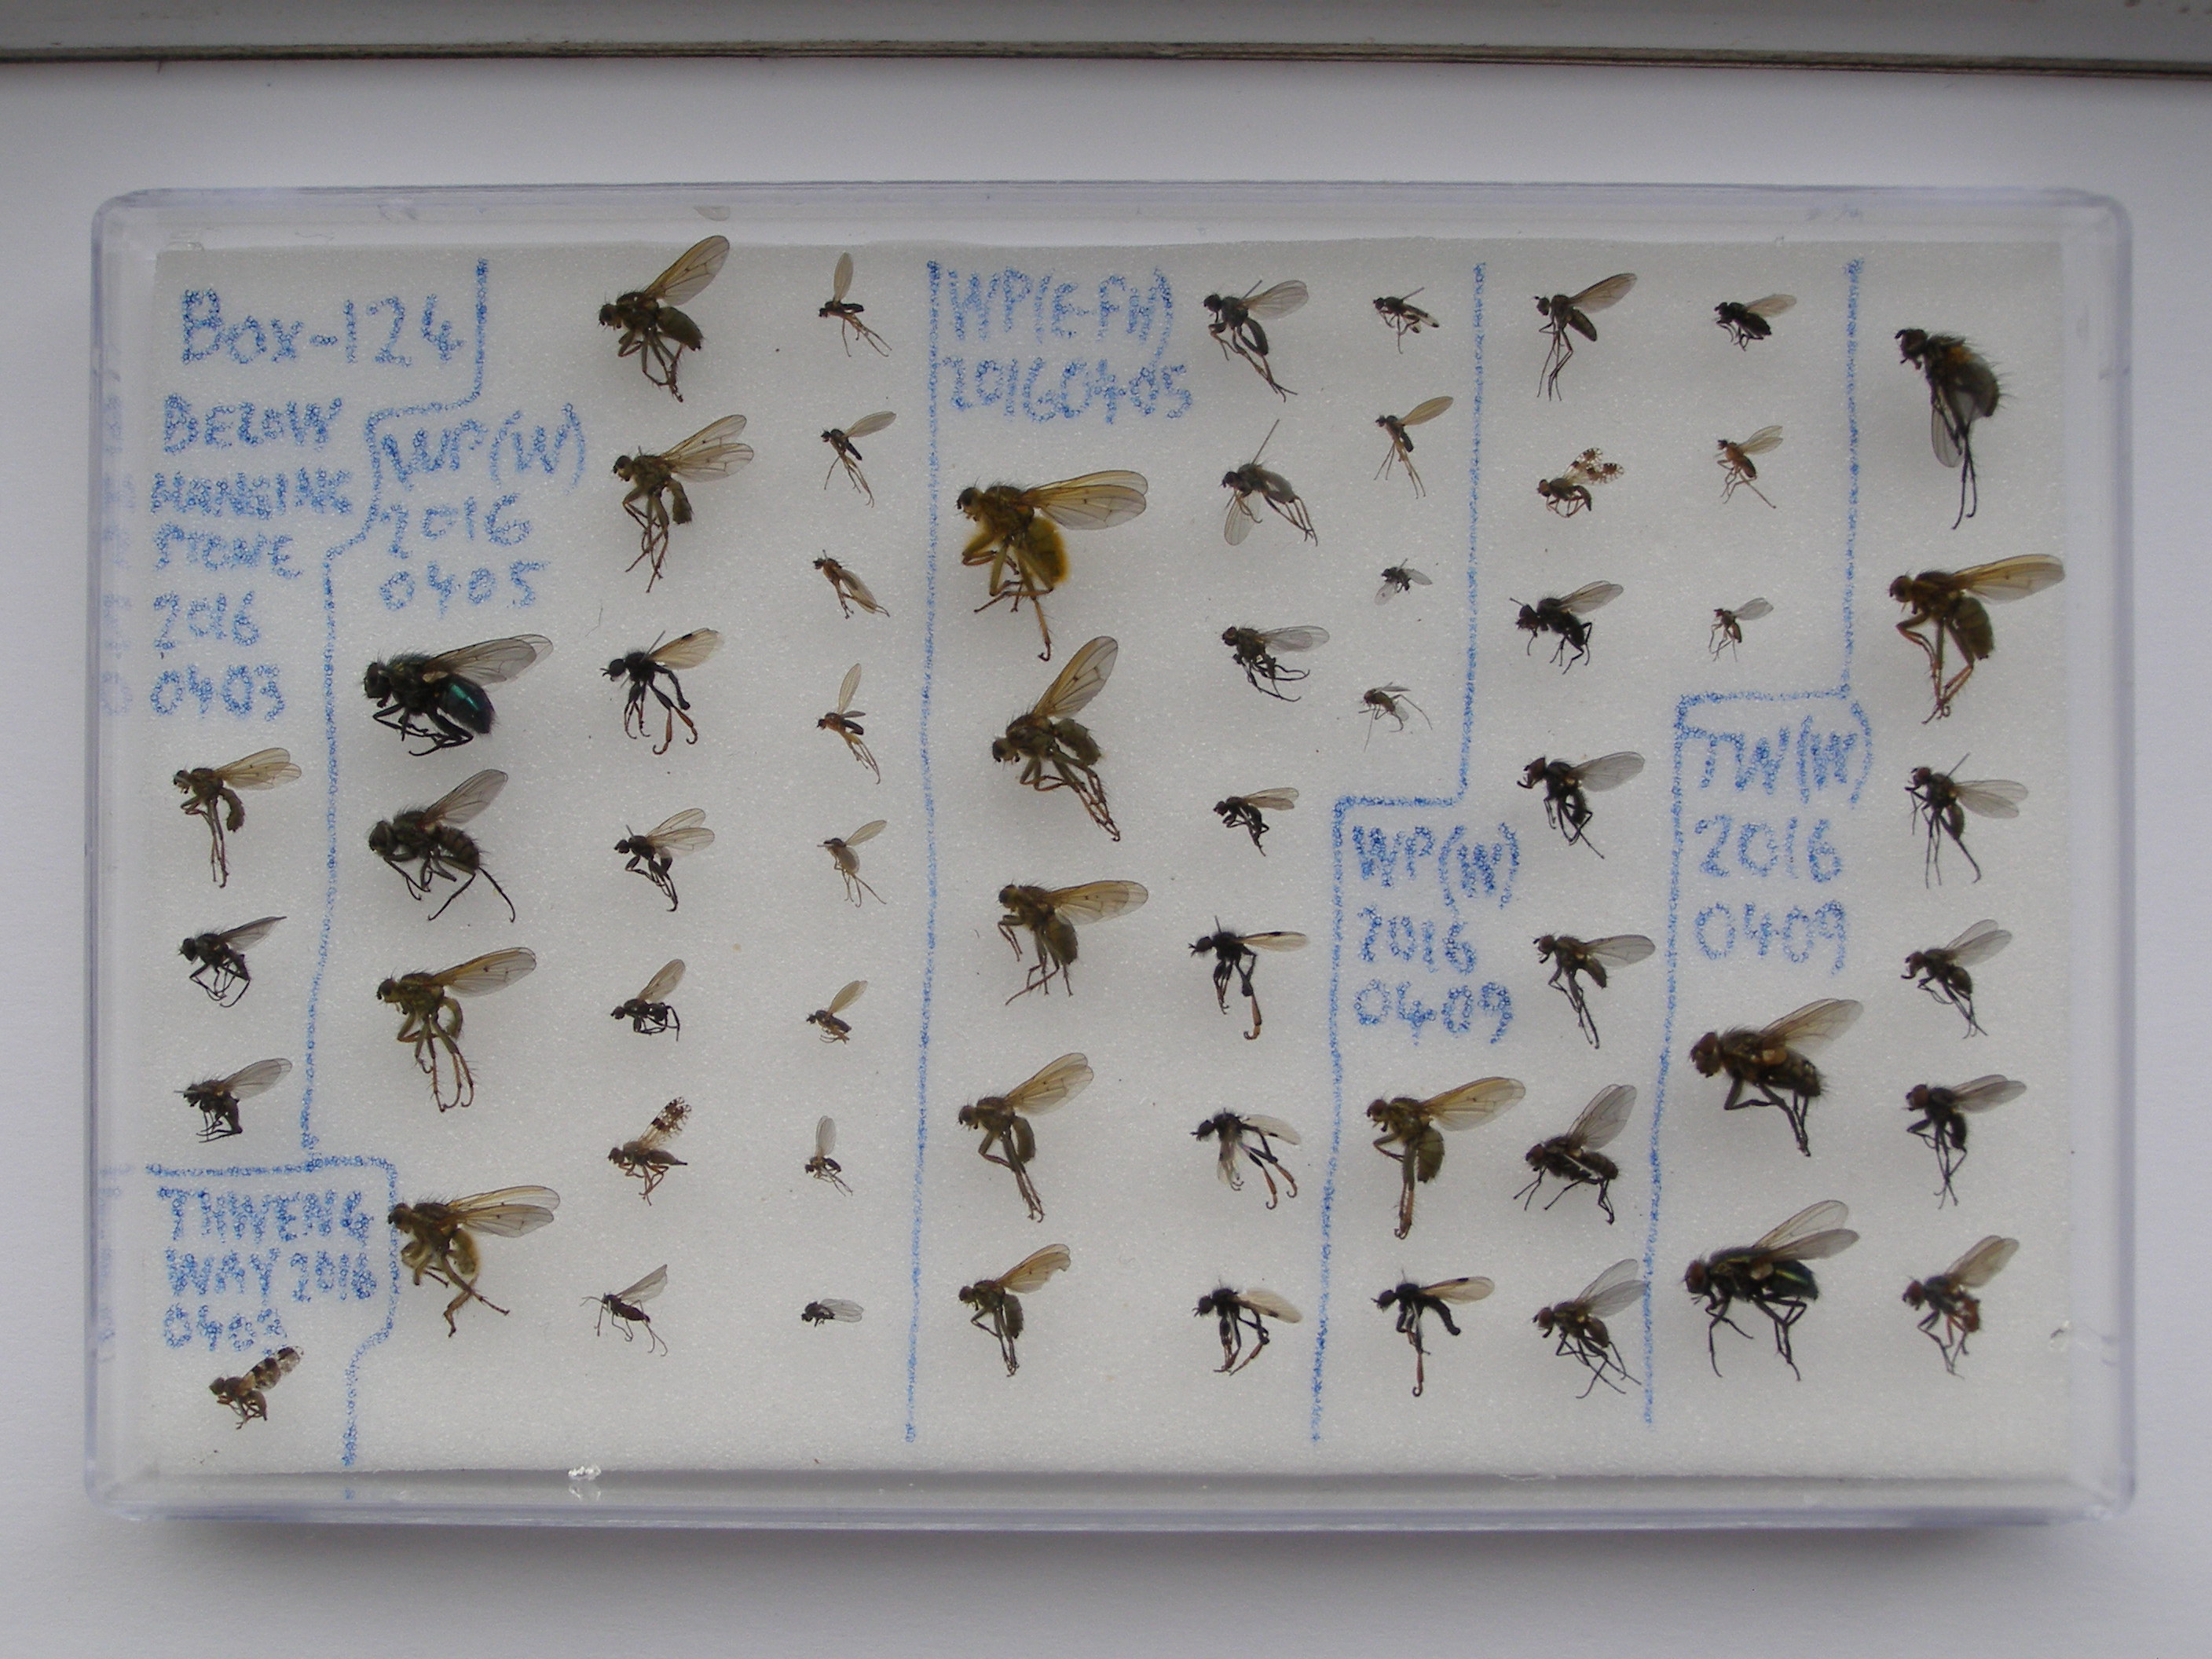 Box-124
BELOW
HANGING
STONE
2016
0403
THWENG
WAY 2016
0403
WP(W)
2016
0405
WP(E-FW)
20160405
WP(W)
2016
0409
TW(W)
2016
0409